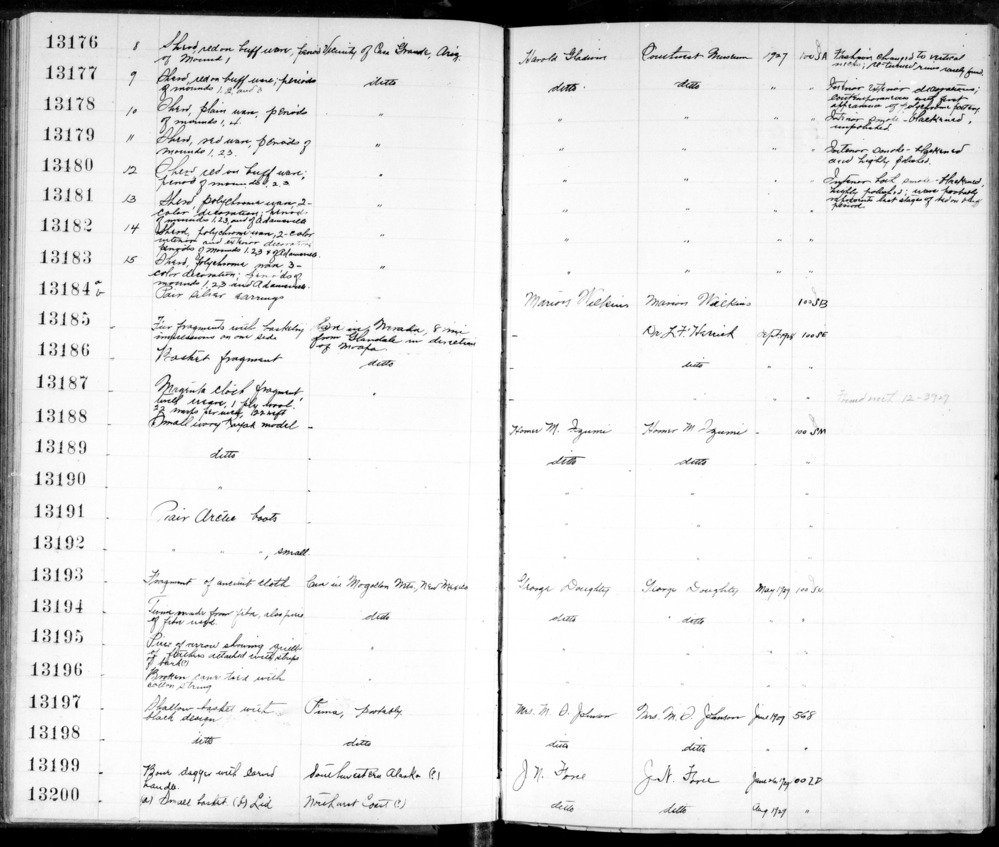 13176 8 Sherd, red on buff ware, period Vicinity of Casa Grande, Ariz. Harold Gladwin 1927 changed to vertical
of Mound 1
13177 9 Sherd, red on buff ware; periods ditto ditto ditto " " Interior exterior decorations;
of mounds 1, 2 and 3 contemporaneous with first
appearance of polychrome pottery
13178 10 Sherd, plain ware, periods " " " " " Interior smoke-blackened,
of mounds 1, 4. unpolished
13179 11 Sherd, red ware, periods of " " " " " Interior smoke-blackened
mounds 1, 2, 3. and highly polished.
13180 12 Sherd red on buff ware; " " " " " Interior both smoke-blackened,
period of mounds 1, 2, 3 highly polished; ware probably
represents last stages of red on buff
period
13181 13 Sherd, polychrome ware, 2- " " " " "
color decoration; period
of mounds 1, 2, 3, and of Adamsville
13182 14 Sherd, polychrome ware, 2-color " " " " "
interior and exterior decoration
periods of mounds 1, 2, 3 & of Adamsville
13183 15 Sherd, polychrome ware 3- " " " " "
color decoration; periods of
mounds 1, 2, 3 and Adamsville
13184 a-b Pair silver earrings Marion Wilkins Marion Wilkins 100 SB
13185 Fragments with basketry Cave in Nevada, 8 mi Dr. L. F. Herrick Sept 1928
impressions on one side from Glendale in direction
of Moapa
13186 Basket fragment ditto ditto " "
13187 cloth fragment, " " " " Found west. 12-
13188 Small ivory kayak model Homer M. Izumi Homer M. Izumi
13189 ditto ditto ditto
13190 " " "
13191 Pair Arctic boots " "
13192 " " ", small " "
13193 Fragment of ancient cloth Cave in Mogollon Mts., New Mexico George Doughty George Doughty May 1929
13194 made from fiber, also piece ditto ditto ditto "
of fiber used
13195 Piece of arrow showing quills " " "
of feathers attached with strips
of bark (?)
13196 Broken cane tied with " " "
cotton string
13197 Shallow basket with Pima, probably Mrs. M. D. Johnson Mrs. M. D. Johnson June 1929 568
black design
13198 ditto ditto ditto ditto " "
13199 Bone dagger with carved Southwestern Alaska (?) J. N. Force J. N. Force June 1929
handle
13200 (a) Small basket (b) Lid Northwest Coast (?) ditto ditto Aug 1929 "